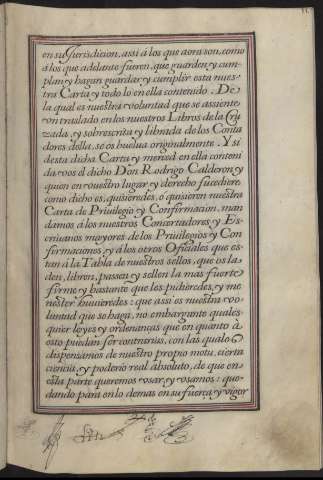 en su Jurisdicion, assi à los que aora son, como
à los que adelante fueren, que guarden, y cum-
plan, y hagan guardar, y cumplir esta nues-
tra Carta y todo lo en ella contenido. De
la qual es nuestra voluntad que se assiente
vn traslado en los nuestros Libros de la Cru
zada, y sobrescrita y librada de los Conta
dores della, se os buelua originalmente. Y si
desta dicha Carta y merced en ella conteni
da vos el dicho Don Rodrigo Calderon, y
quien en vuestro lugar, y derecho sucediere
como dicho es, quisieredes, ó quisieren nuestra
Carta de Priuilegio y Confirmacion, man
damos à los nuestros Concertadores, y Es-
criuanos mayores de los Priuilegios y Con
firmaciones, y à los otros Oficiales que es-
tan à la Tabla de nuestros sellos, que os la
den, libren, passen y sellen la mas fuerte
firme, y bastante que les pidieredes, y me
nester huuieredes: que assi es nuestra vo-
luntad que se haga, no embargante quales-
quier leyes y ordenanças que en quanto à
esto puedan ser contrarias, con las quales
dispensamos de nuestro propio motu, cierta
ciencia, y poderio real absoluto, de que en
esta parte queremos vsar, y vsamos: que-
dando para en lo demas en su fuerça y vigor